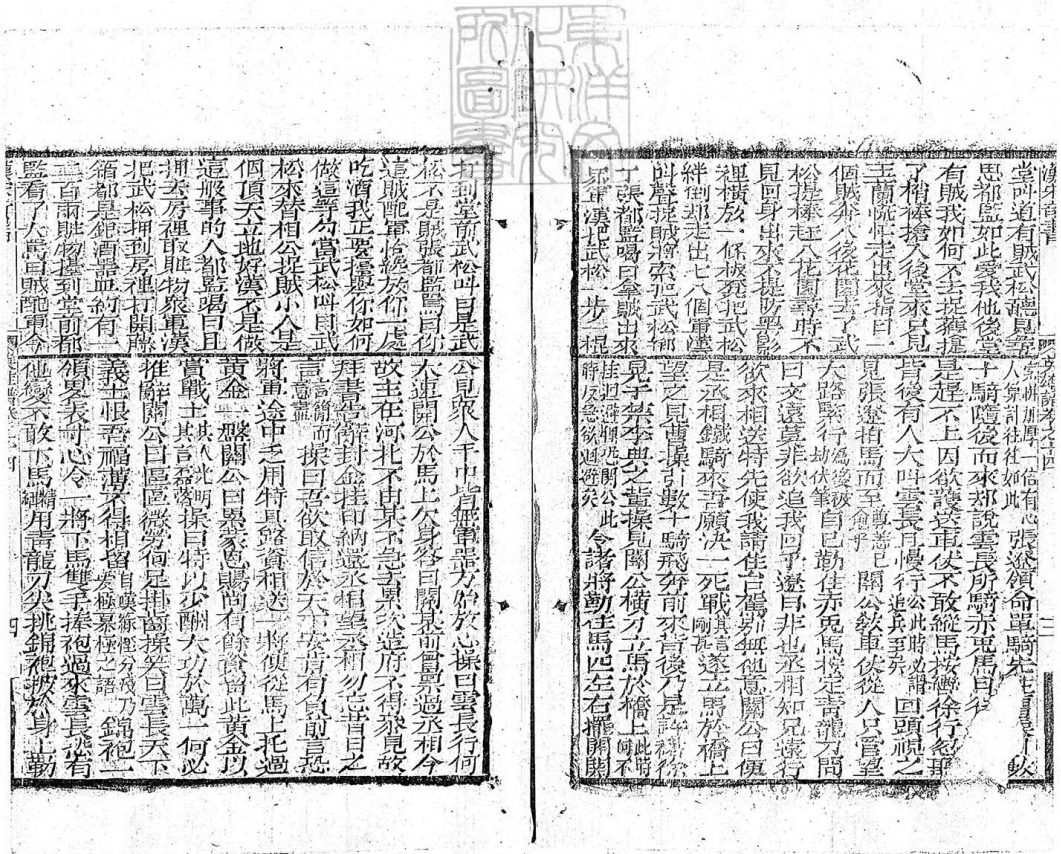 漢宋奇書
堂叫道有賊武松聽見尋
思都監如此愛我他後堂
有賊我如何不去捉獲提
了梢棒搶入後堂來只見
玉蘭慌忙走出來指曰一
個賊奔入後花園去了武
松提棒赶入花園尋時不
見回身出來不提防黑影
裡橫放一條板凳把武松
絆倒却走出七八個軍漢
叫聲捉賊將索把武松綁
了張都監喝曰拿賊出來
眾軍漢把武松一步一棍
英雄譜卷之十四 二
人舉計往往如此 張遼領命單騎先
十騎隨後而來却說雲長所騎赤兎馬日行
是赶不上因欲護送車仗不敢縱馬按轡徐行忽聽
背後有人大叫雲長且慢行公此時必謂追兵到矣回頭視之
見張遼拍馬而至 關公敎車仗從人只管望
大路緊行為後被劫伏筆自已勒住赤兎馬提定青龍刀問
曰文遠莫非欲追我回乎遼曰非也丞相知兄遠行
欲來相送特先使我請住台駕別無他意關公曰便
是丞相鐵騎來吾願決一死戰其言剛甚遂立馬於橋上
望之見曹操引數十騎飛奔前來背後乃是許褚徐
晃于禁李典之輩操見關公橫刀立馬於橋上
令諸將勒住馬匹左右擺開關
拖到堂前武松叫曰是武
松不是賊張都監罵曰你
這賊配軍怕縱放你一處
吃酒我正要擡舉你如何
做這等勾當武松叫曰武
松來替相公捉賊小人是
個頂天立地好漢不是做
這般事的人都監喝曰且
押去房裡取賍物衆軍漢
把武松押到房裡打開籐
箱都是銀酒器皿約有一
二百兩賍物擡到堂前都
監看了大罵曰賊配軍今
公見衆人手中皆無軍器方始放心操曰雲長行何
太速關公於馬上欠身答曰關某前曾禀過丞相今
故主在河北不由某不急去累次造府不得叅見故
拜書告辭封金挂印納還丞相望丞相勿忘昔日之
言 操曰吾欲取信於天下安肯有負前言恐
將軍途中乏用特具路資相送一將便從馬上托過
黃金一盤關公曰累蒙恩賜尚有餘資留此黃金以
賞戰士其人光明其言磊落操曰特以少酬大功於萬一何必
推辭關公曰區區微勞何足掛齒操笑曰雲長天下
義士恨吾福薄不得相留自嘆緣慳分淺乃愛極慕極之語錦袍一
領畧表寸心令一將下馬雙手捧袍過來雲長恐有
他變不敢下馬精細用靑龍刀尖挑錦袍披於身上勒